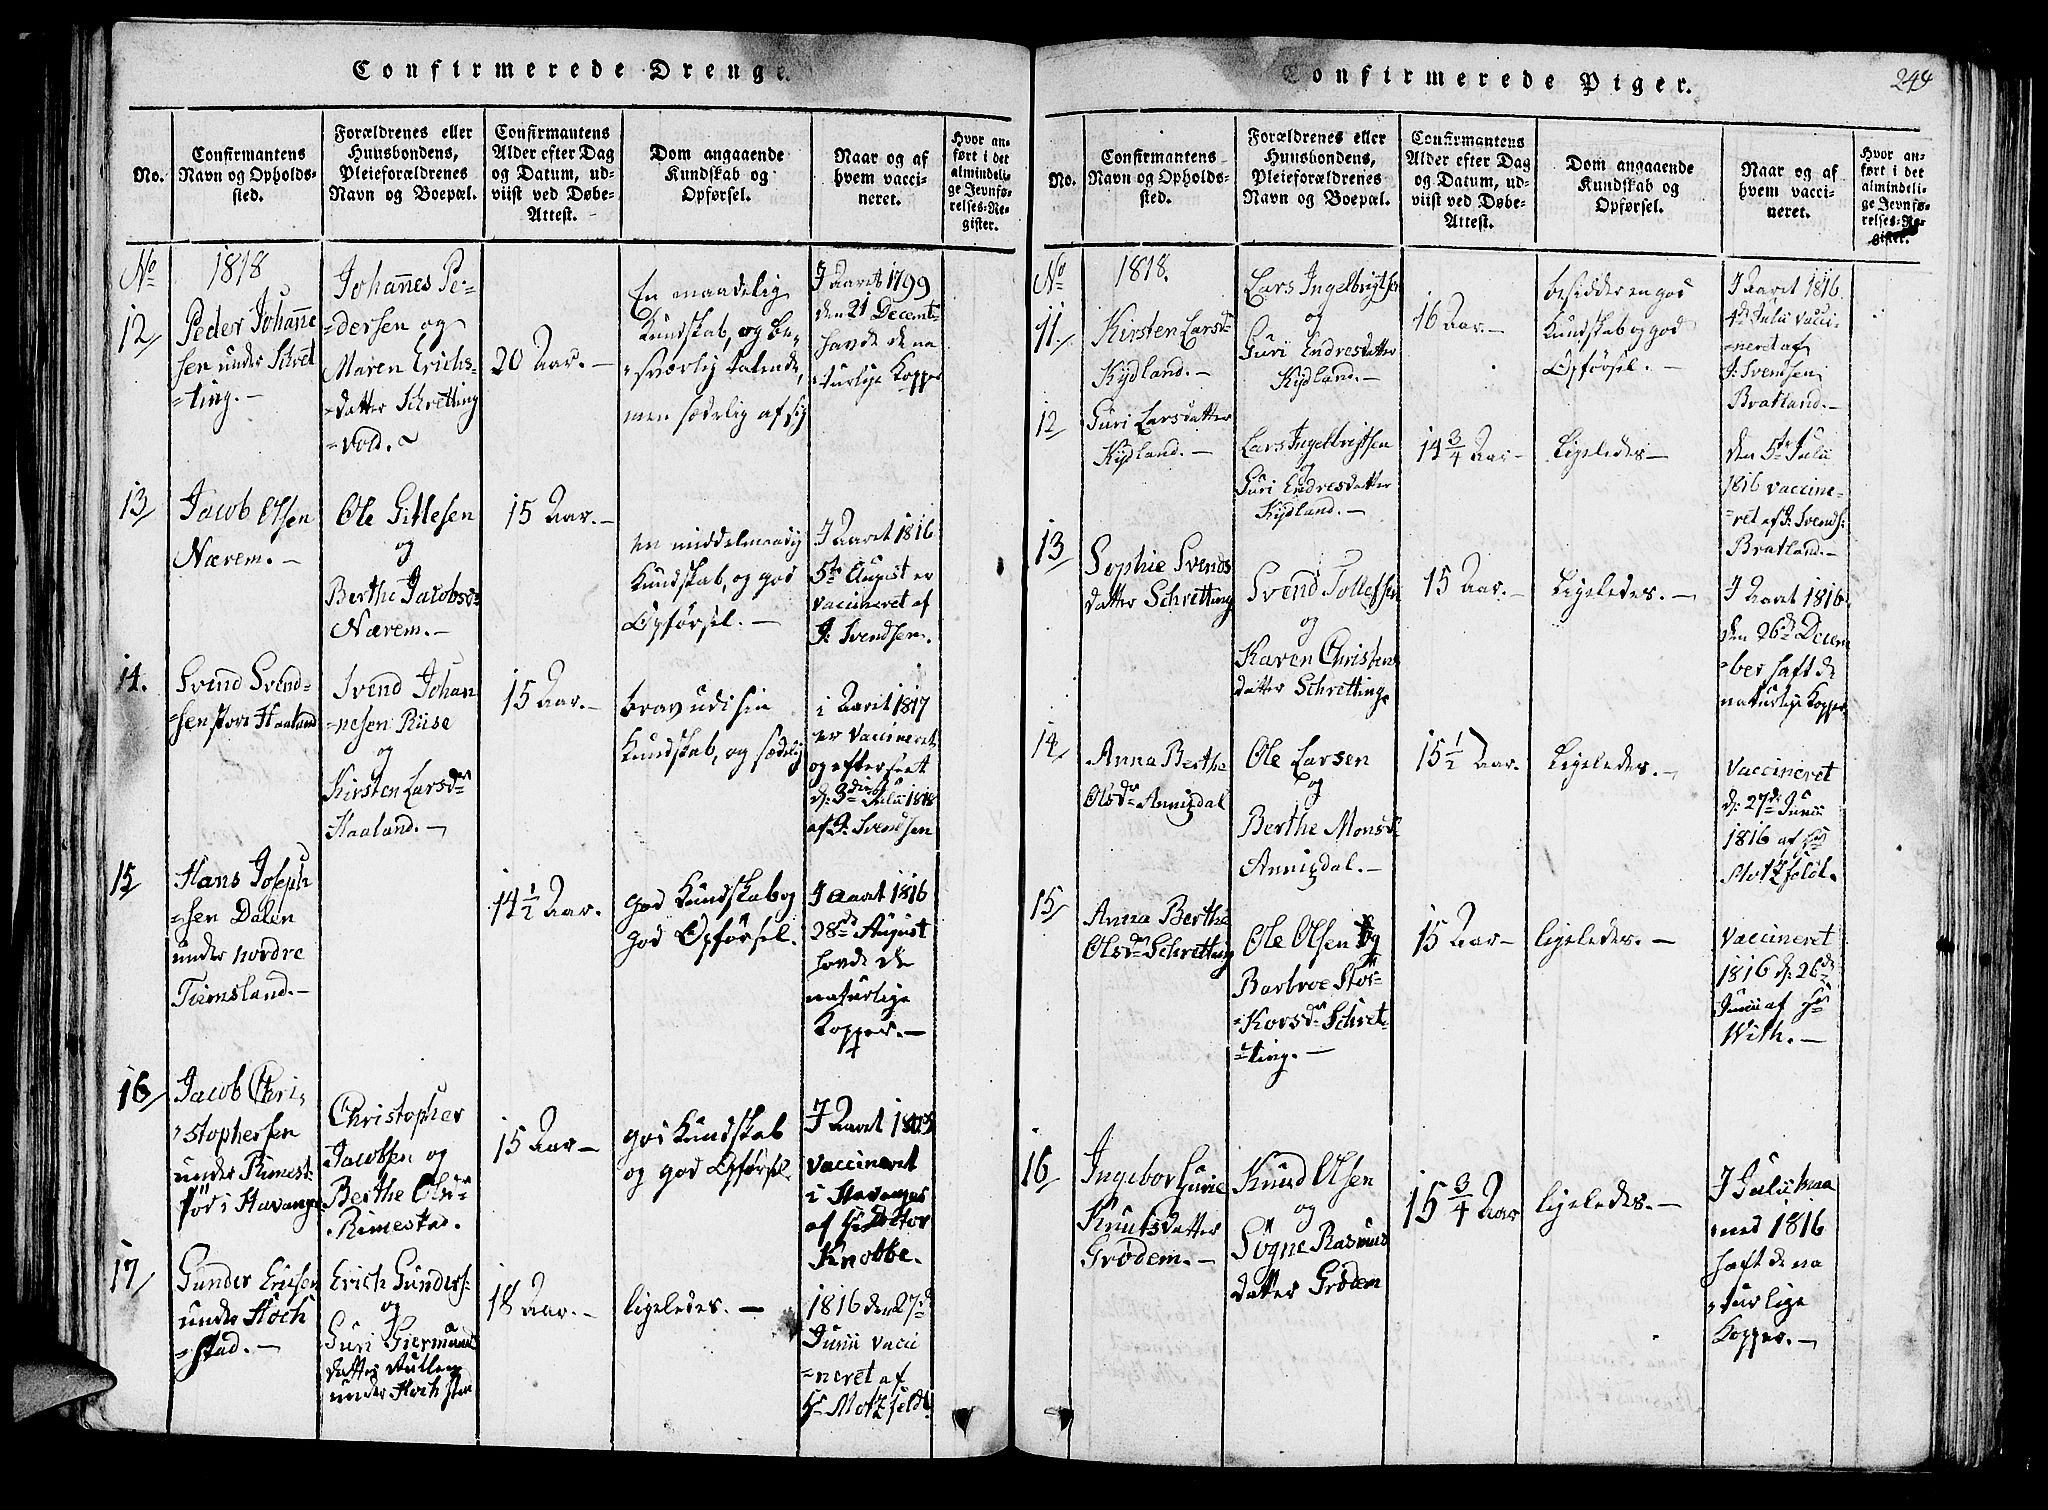 Confirmerede Drenge.
No.
Confirmantens
Navn og Opholds-
sted.
Forældrenes eller
Huusbondens,
Pleieforældrenes
Navn og Boepæl.
Confirmantens
Alder efter Dag
og Datum, ud-
viist ved Døbe-
Attest.
Dom angaaende
Kundskab og
Opførsel.
Naar og af
hvem vacci-
neret.
Hvor an-
ført i det
almindeli-
ge Jevnfø-
relses-Re-
gister.
No
1818
12/
Peder Johanne
sen under Schret
=ting.-
Johannes Pe-
=dersen og
Maren Erichs-
=datter Schretting
=vold.
20 Aar.-
En maadelig
Kundskab, og be-
sværlig talende,
men sædelig af sig
I Aaret 1799
den 21 Decemb-
havde de na
turlige Kopper
13/
Jacob Olsen
Nærem.-
Ole Gitlesen
og
Berthe Jacobsd-
Nærem.-
15 Aar.-
en middelmaadig
Kundskab, og god
Opførsel.-
I Aaret 1816
5te August er
vaccineret af
J: Svendsen.
14.
Svend Svend-
=sen store Haaland
Svend Johan
=nesen Riise
og
Kirsten Larsdr
Haaland.-
15 Aar.-
brav udi sin
Kundskab, og sædelig
i Aaret 1817
er vaccineret
og efterseet
d: 3die Julii 1818
af J: Svendsen
15/
Hans Joseph
=sen Dalen
under nordre
Tiemsland.-
14 1/2 Aar.
god Kundskab og
god Opførsel.
I Aaret 1816
28de August
havde de
naturlige
Kopper.-
16/
Jacob Chri-
stophersen
under Rimest-
Christopher
Jacobsen og
Berthe Olsdr
Rimestad.
15 Aar-
god Kundskab
og god Opførsel
I Aaret
vaccineret
i Stavanger
af Hr Doctor
Knobbe.
17/
Gunder Erichsen
under Hoch
=stad.-
Erich Gunders:
og
Guri Giermunds
datter
under Hochstad
18 Aar.-
ligeledes.-
1816 den 27de
Junii vacci
=neret af
Hr Motzfeldt
Confirmerede Piger.
244
No.
Confirmantens
Navn og Opholds-
sted.
Forældrenes eller
Huusbondens,
Pleieforældrenes
Navn og Boepæl.
Confirmantens
Alder efter Dag
og Datum, ud-
viist ved Døbe-
Attest.
Dom angaaende
Kundskab og
Opførsel.
Naar og af
hvem vacci-
neret.
Hvor an-
ført i det
almindeli-
ge Jevnfø-
relses-Re-
gister.
No
1818.
11./
Kirsten Larsd-
Kydland.-
Lars Ingelbrigtsen
og
Guri Endresdatter
Kydland.-
16 Aar.-
besidder en god
Kundskab og god
Opførsel.-
I Aaret 1816
4de Julii vacci-
=neret af
J: Svendsen
Bratland.-
12
Guri Larsdatter
Kydland.-
Lars Ingelbrigtsen
og
Guri Endresdatter
Kydland.-
14 3/4 Aar-
Ligeledes-
den 5te Julii
1816 vaccine-
=ret af J: Svends:
Bratland.-
13
Sophie Svends
datter Schretting
Svend Tollefsen
og
Karen Christens
datter Schretting
15 Aar.-
Ligeledes.-
I Aaret 1816
den 26de Decem
=ber haft de
naturlige Kopper
14/
Anna Berthe
Olsdr Annigdal
Ole Larsen
og
Berthe Monsd-
Annigdal.-
15 1/2 Aar.
Ligeledes.-
vaccineret
d: 27de Junii
1816 af Hr
Motzfeldt.
15/
Anna Berthe
Olsdr Schretting
Ole Olsen og
Barbroe Stor-
=Korsdr Schret-
=ting.-
15 Aar-
ligeledes.-
vaccineret
1816 d: 26de
Junii af Hr
With.-
16/
Ingebor Gurie
Knutsdatter
Grødem.-
Knud Olsen
og
Søgne Rasmus
datter Grødem
15 3/4 Aar
ligeledes.-
I Julii maa
ned 1816
haft de na
turlige
Kopper.-